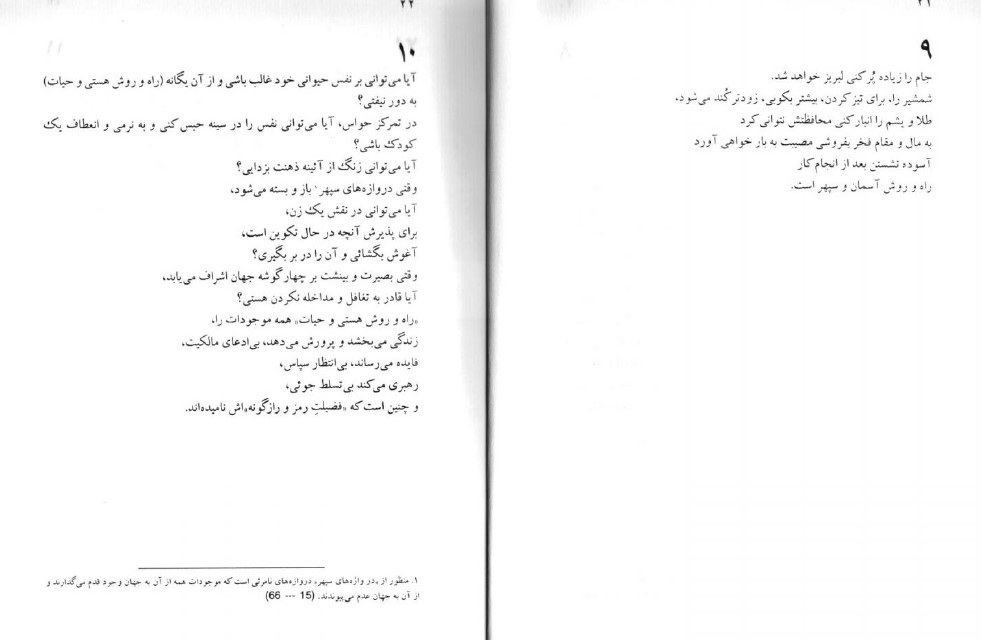 ۲۱
۹
جام را زیاده پُر کنی لبریز خواهد شد.
شمشیر را، برای تیز کردن، بیشتر بکوبی، زودتر کُند می‌شود،
طلا و یشم را انبار کنی محافظتش نتوانی کرد
به مال و مقام فخر بفروشی مصیبت به بار خواهی آورد
آسوده نشستن بعد از انجام کار
راه و روش آسمان و سپهر است.
۲۲
۱۰
آیا می‌توانی بر نفس حیوانی خود غالب باشی و از آن یگانه (راه و روش هستی و حیات)
به دور نیفتی؟
در تمرکز حواس، آیا می‌توانی نفس را در سینه حبس کنی و به نرمی و انعطاف یک
کودک باشی؟
آیا می‌توانی زنگ از آئینه ذهنت بزدایی؟
وقتی دروازه‌های سپهر۱ باز و بسته می‌شود،
آیا می‌توانی در نقش یک زن،
برای پذیرش آنچه در حال تکوین است،
آغوش بگشائی و آن را در بر بگیری؟
وقتی بصیرت و بینشت بر چهار گوشه جهان اشراف می‌یابد،
آیا قادر به تغافل و مداخله نکردن هستی؟
«راه و روش هستی و حیات» همه موجودات را،
زندگی می‌بخشد و پرورش می‌دهد، بی‌ادعای مالکیت،
فایده می‌رساند، بی‌انتظار سپاس،
رهبری می‌کند بی‌تسلط جوئی،
و چنین است که «فضیلتِ رمز و رازگونه»اش نامیده‌اند.
۱. منظور از «در وازه‌های سپهر» دروازه‌های نامرئی است که موجودات همه از آن به جهان وجود قدم می‌گذارند و
از آن به جهان عدم می‌پیوندند. (15 --- 66)